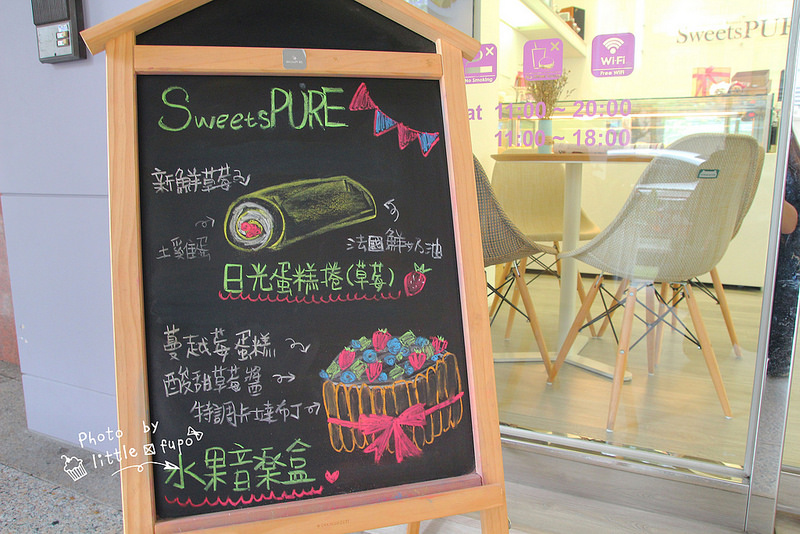 SweetsPURE
新鮮草莓
土雞蛋
法國鮮奶油
日光蛋糕捲(草莓)
蔓越莓蛋糕
酸甜草莓醬
特調卡士達布丁
水果音楽盒
Photo by
little fupo
No Smoking
Wi-Fi
Free WiFi
SweetsPUR
at 11:00 ~ 20:00
11:00 ~ 18:00